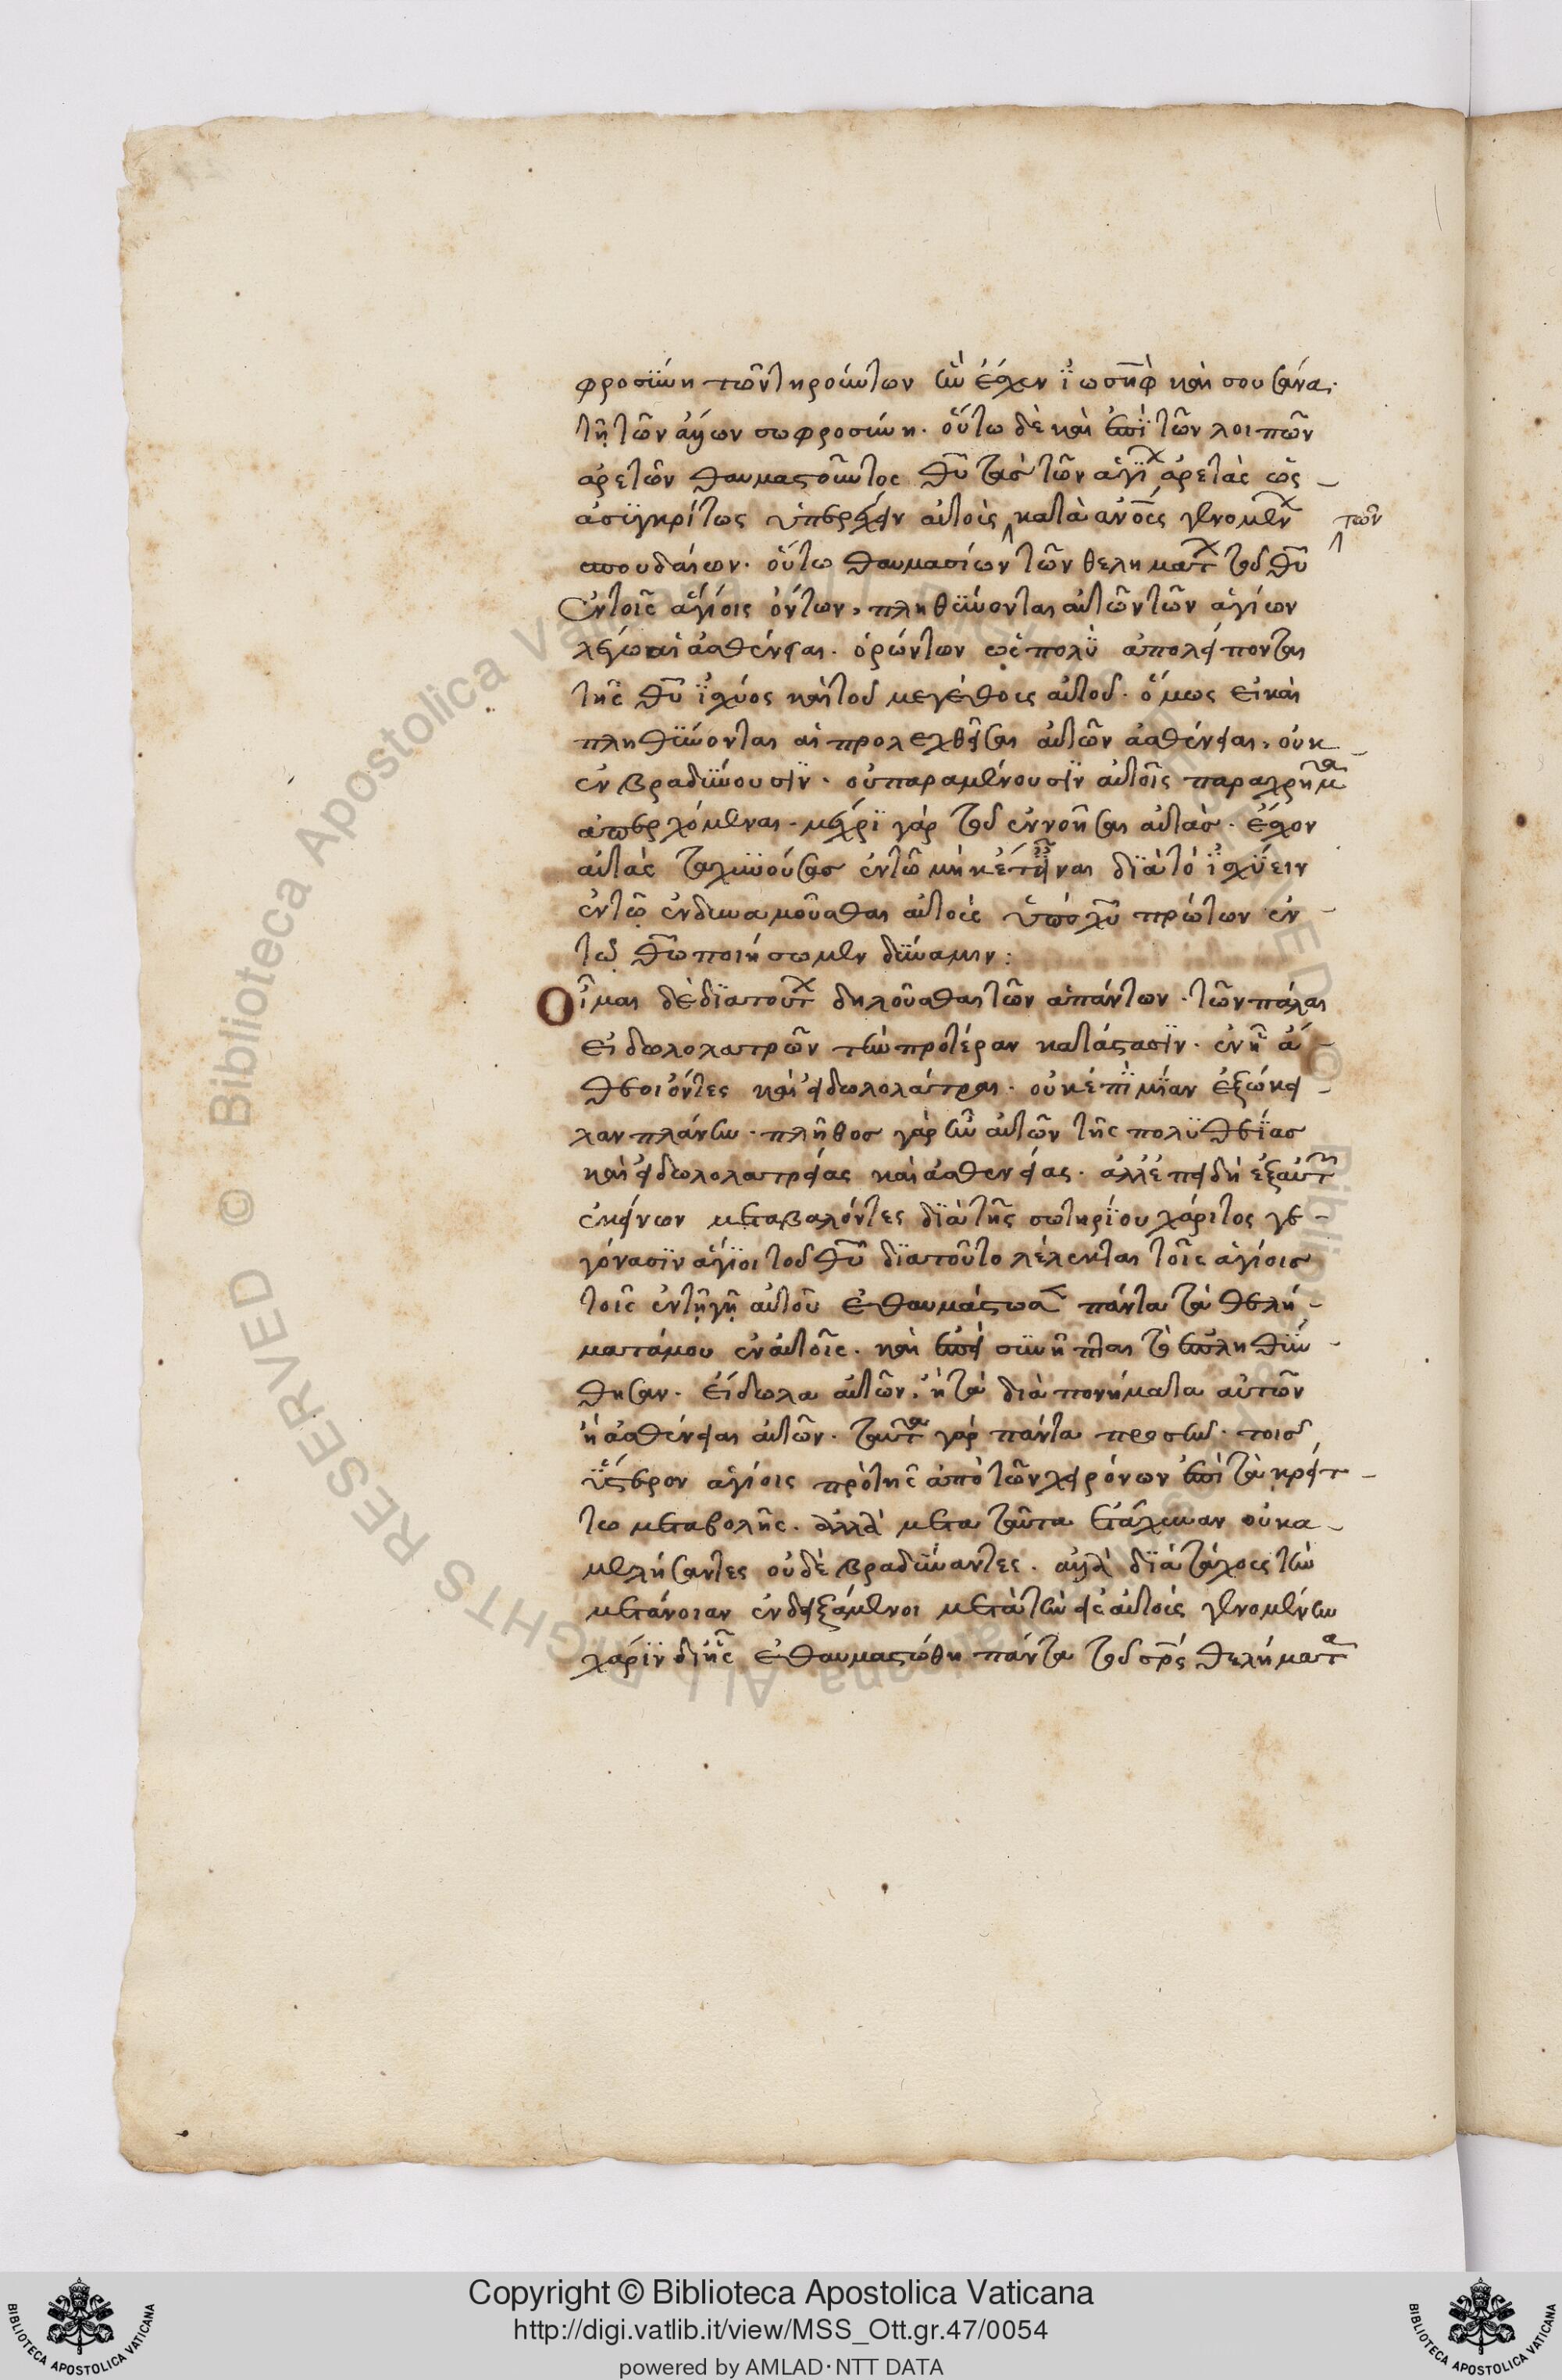 φροσϋνη τῶν τηρούντων ἣν ἔχεν ϊωσὴφ καὶ σουσάνα·
τῇ τῶν ἁγίων σωφροσύνη. οὕτω δὲ καὶ ἐπὶ τῶν λοιπῶν
ἀρετῶν θαυμαστοῦντος θῦ τὰσ τῶν ἁγίων ἀρετὰς ὡς
ἀσϋγκρίτως αὐτοὶς κατὰ ἀνοὺς γενομένων τῶν
σπουδαίων. οὕτω θαυμασίων τῶν θελημάτων τοῦ θῦ
ἐν τοῖς ἁγίοις ὄντων, πληθϋνονται αὐτῶν τῶν ἁγίων
λέγω αἱ ἀσθένειαι. ὁρώντων ὡς πολϋ ἀπολείπονται
τῆς θῦ ϊσχύος καὶ τοῦ μεγέθους αὐτοῦ. ὅμως εἰ καὶ
πληθϋνονται αἱ προλεχθεῖσαι αὐτῶν ἀσθένειαι, οὐκ
ἐν βραδϋνουσϊν. οὐ παραμένουσϊν αὐτοῖς παραχρῆμα
ἀπερχόμεναι. μέχρϊ γὰρ τοῦ ἐννοῆσαι αὐτὰσ. ἔχον
αὐτὰς ταχυνούσασ ἐν τῶ μὴκέτι εἶναι δϊὰ τὸ ϊσχϋειν
ἐν τῷ ἐνδυναμοῦσθαι αὐτοὺς ὑπὸ χῦ πρώτων ἐν
τῷ θῶ ποιήσωμεν δϋναμιν:
Οἶμαι δὲ δϊατούτων δηλοῦσθαι τῶν ἁπάντων. τῶν πάλαι
εἰδωλολατρῶν τὴν προτέραν κατάστασϊν. ἐν ᾗ ἄ
θεοι ὄντες καὶ εἰδωλολάτραι. οὐκ ἐπϊ μϊαν ἐξώκει
λαν πλάνην. πλῆθοσ γὰρ ἦν αὐτῶν τῆς πολϋθεϊασ
καὶ εἰδωλολατρείας καὶ ἀσθενείας. ἀλλ' ἐπειδὴ ἐξ αὐτῶν
ἐκείνων μεταβαλόντες δϊὰ τῆς σωτηρϊου χάριτος γε
γόνασϊν ἅγϊοι τοῦ θῦ δϊατοῦτο λέλεκται τοῖς ἁγίοισ
τοῖς ἐν τῇ γῇ αὐτοῦ ἐθαυμάστωσε πάντα τὰ θελή
ματά μου ἐν αὐτοῖς. καὶ ἐπεὶ σϋνῆπται τὸ ἐπληθϋν
θησαν. εἴδωλα αὐτῶν. ἢ τὰ διὰ πονήματα αὐτῶν
ἢ ἀσθένειαι αὐτῶν. ταῦτα γὰρ πάντα προσῆν. τοισ
ϋστερον ἁγίοις πρὸ τῆς ἀπὸ τῶν χειρόνων ἐπὶ τὰ κρείτ
τω μεταβολῆς. ἀλλὰ μετα ταῦτα ἐτάχυναν οὐκ ἀ
μελήσαντες οὐδὲ βραδϋναντες. ἀλλὰ δϊὰ τάχους τὴν
μετάνοιαν ἐνδειξάμενοι μετὰ τὴν εἰς αὐτοὺς γενομένην
χάρϊν δι' ἧς ἐθαυμαστώθη πάντα τοῦ σρς θελήματα
Copyright © Biblioteca Apostolica Vaticana
http://digi.vatlib.it/view/MSS_Ott.gr.47/0054
powered by AMLAD·NTT DATA
BIBLIOTECA APOSTOLICA VATICANA
BIBLIOTECA APOSTOLICA VATICANA